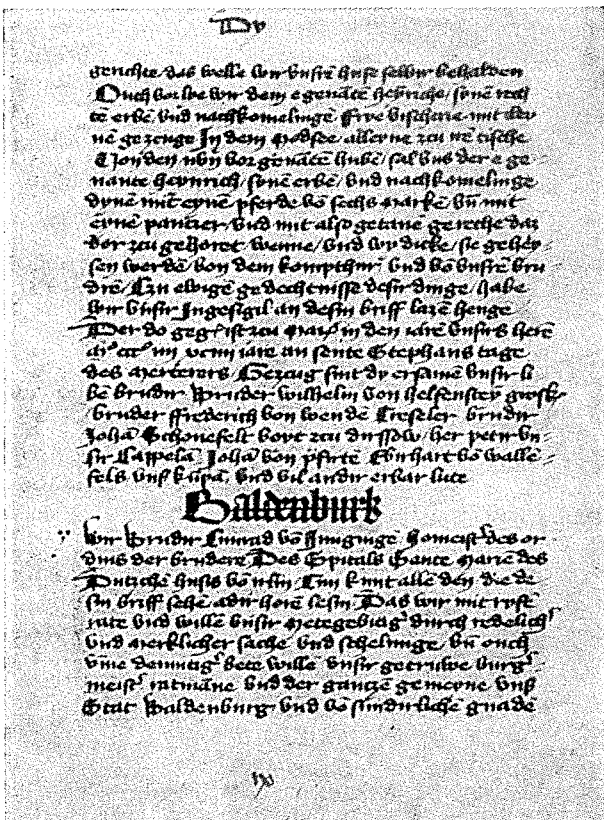 Dy
gerichte das welle wir vnsrē huse selbir behalden
Ouch vorlye wir dem egenātē heynriche, synē rech
tē erbē vnd nachkomelingē frye vischerie mit cley
nē gezeuge In dem See alleyne zcu tissche
Von den nūn vorgenātē hubē, sal vns der ege
nante heynrich, synē erbē, vnd nachkomelinge
dynē mit eynē pferde vō sechs markē, vn̄ mit
eynē panczer, vnd mit alsogetane gerethe daz
dor zcu gehoret, wenne, vnd wy dicke, sie gehey
sen werdē, von dem kompthur, vnd vō vnsrē bru
drē, Czu ewigē gedechtnisse desir dinge, habe
wir vnsir Ingesigil an desin briff lazē henge
Der do gegebē ist zcu in den iarē vnsirs herē
iare an sente Stephans tage
des merterers Geczug sint dy ersamē vnsir li
bē brudir Bruder wilhelm von helfensteyn
bruder ffrederich von wendē Treseler brudir
Johā Schonefelt voyt zcu dirssow, her petir vn
sir Cappelā Johā von pfirte Ebirhart vō walle
fels vnsir kūpā, vnd vil andir erbar lute
Baldenburk
Wir Brudir Cunrad vō Jungingē homeistir des or
dins der brudere Des Spitals Sante Marie des
Dutschē huses vō irlm̄, Tun kunt allē den die de
sin briff sehē adir horē lesin Das wir mit ryfē
rate vnd willē vnsir metegebitigr durch redelichr
vnd merklicher sache vnd schelunge, vn̄ ouch
vme demutigr bete willē vnsir getruwē burgr
meistr ratmāne vnd der gantzē gemeyne vnsir
Stat Baldenburg vnd vō sundirlichē gnadē